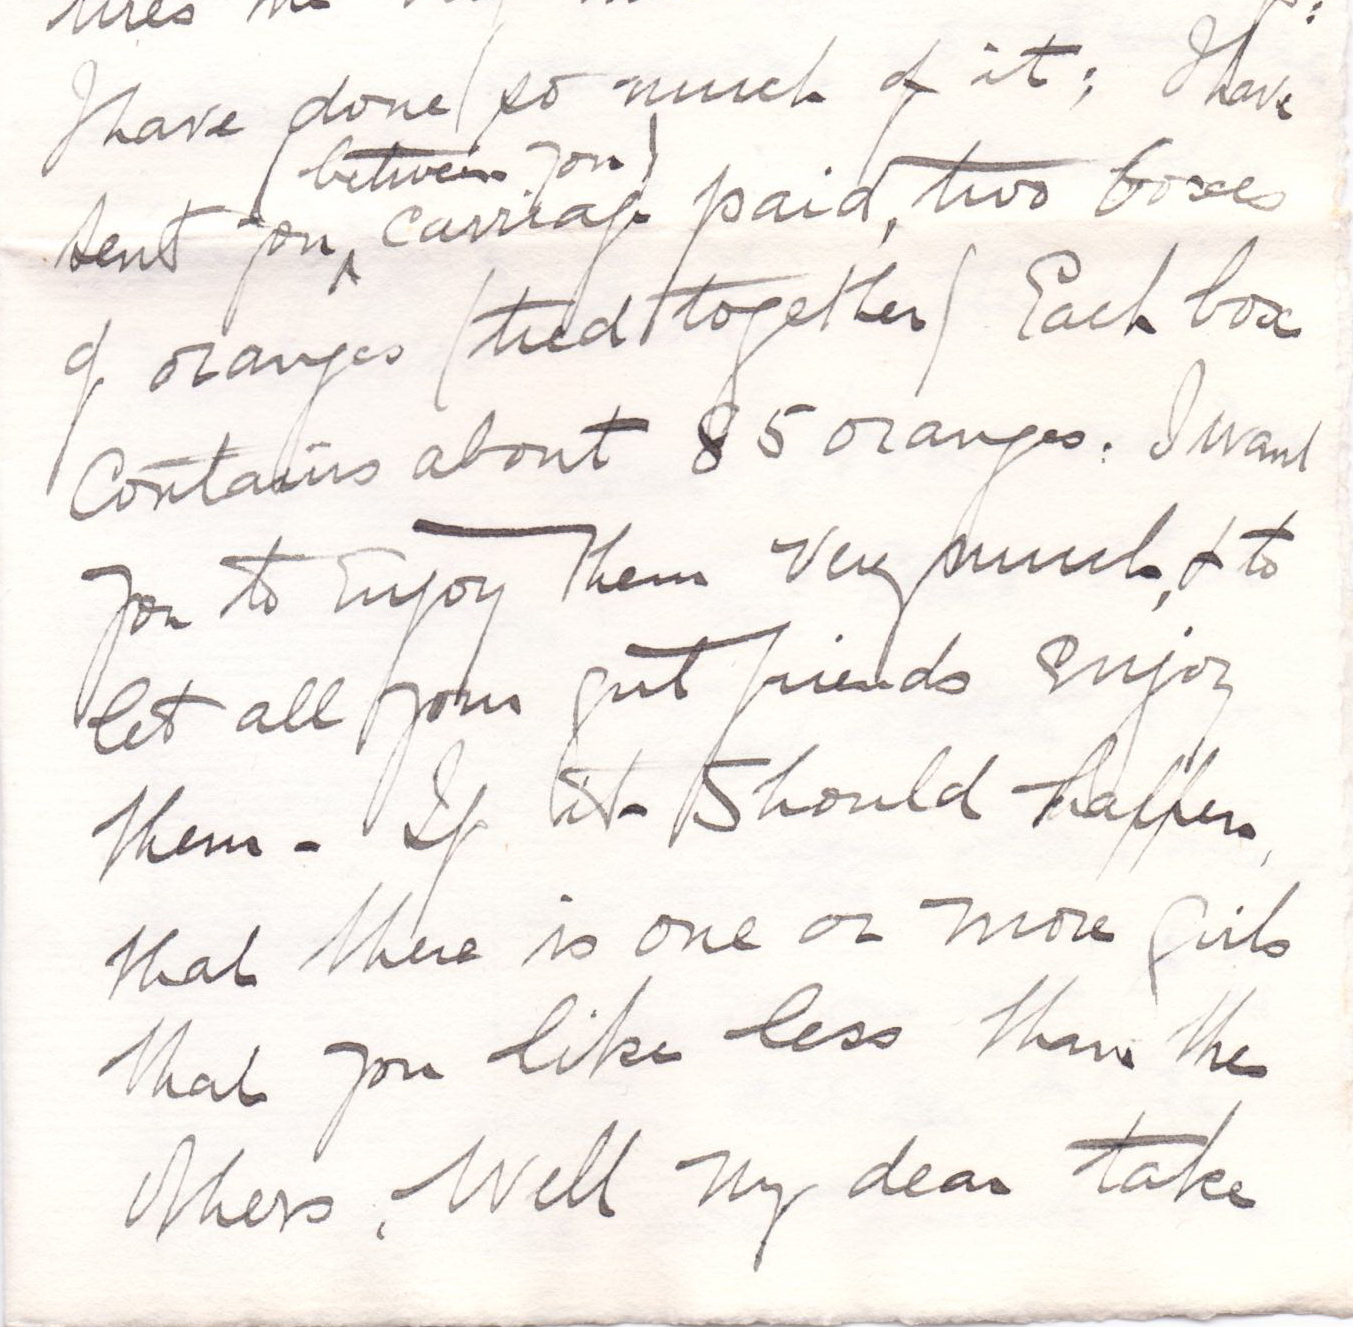 tires me
I have done so much of it; I have
between you
sent you carriage paid, two boxes
of oranges (tied together) Each box
Contains about 85 oranges. I want
you to Enjoy them very much, & to
let all your girl friends enjoy
them - If it should happen,
that there is one or more girls
that you like less than the
others, Well my dear take